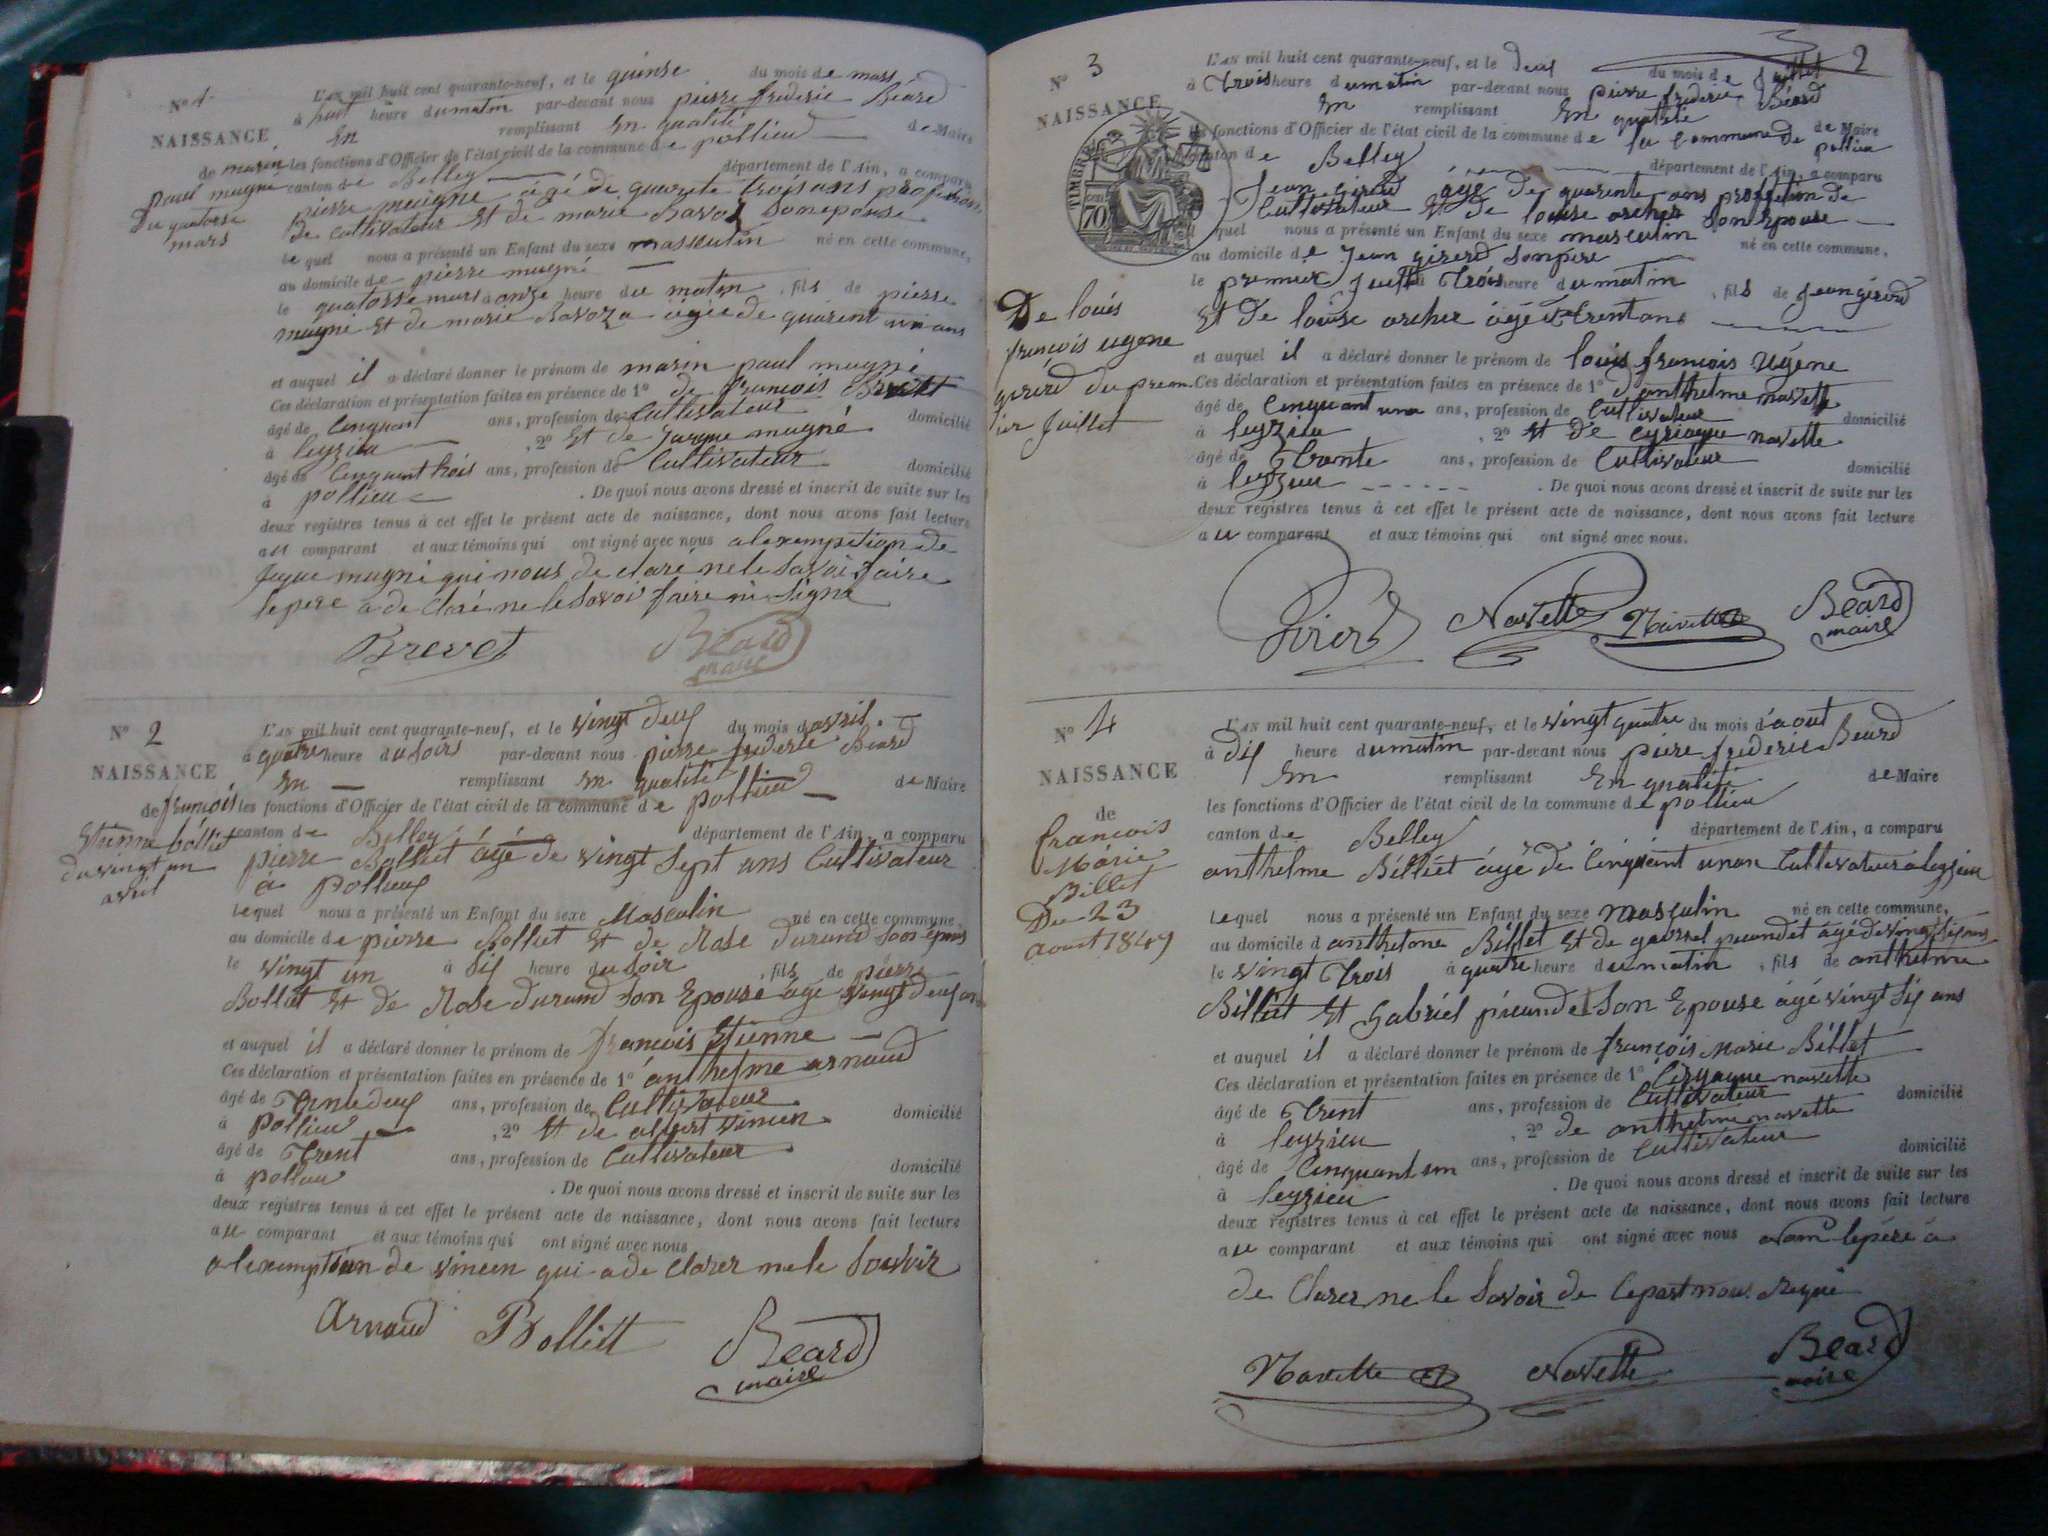 N° 1
NAISSANCE
de marin
paul mugné
du quatorse
mars
L'AN mil huit cent quarante-neuf, et le quinse du mois de mars
à huit heure du matin par-devant nous pierre frederic Béard
En remplissant En qualité de Maire
les fonctions d'Officier de l'état civil de la commune de pollieu
canton de Belley département de l'Ain, a comparu
pierre mugne âgé de quarente trois ans profession
de Cultivateur Et de marie Savoz Son epouse
lequel nous a présenté un Enfant du sexe masculin né en cette commune,
au domicile de pierre mugné
le quatorse mars à onze heure du matin, fils de pierre
mugne Et de marie âgée de quarent un ans
et auquel il a déclaré donner le prénom de marin paul mugné
Ces déclaration et présentation faites en présence de 1° de francois Brevet
âgé de Cinquant ans, profession de Cultivateur domicilié
à leyzieu, 2° Et de Jacque mugné
âgé de Cinquant trois ans, profession de Cultivateur domicilié
à pollieu. De quoi nous avons dressé et inscrit de suite sur les
deux registres tenus à cet effet le présent acte de naissance, dont nous avons fait lecture
au comparant et aux témoins qui ont signé avec nous alexemption de
Jaque mugné qui nous de claré ne le Savoir faire
le pere a de Claré ne le Savoi faire ni Signé
Brevet Béard
maire
N° 2
NAISSANCE
de françois
Etienne bolliet
du vingt un
avril
L'AN mil huit cent quarante-neuf, et le vingt deux du mois d'avril
à quatre heure du Soirs par-devant nous pierre frederic Béard
En remplissant En qualité de Maire
les fonctions d'Officier de l'état civil de la commune de pollieu
canton de Belley département de l'Ain, a comparu
pierre Bolliet âgé de vingt Sept ans Cultivateur
à Pollieu
lequel nous a présenté un Enfant du sexe Masculin né en cette commune,
au domicile de pierre Bolliet Et de Rose Durand Son Epous
le vingt un à Six heure du Soir, fils de pierre
Bolliet Et de Rose Durand Son Epouse âgé vingt deux ans
et auquel il a déclaré donner le prénom de francois Etienne
Ces déclaration et présentation faites en présence de 1° anthelme arnaud
âgé de Trente deux ans, profession de Cultivateur domicilié
à Pollieu, 2° Et de albert vincen
âgé de Trent ans, profession de Cultivateur domicilié
à Pollieu. De quoi nous avons dressé et inscrit de suite sur les
deux registres tenus à cet effet le présent acte de naissance, dont nous avons fait lecture
au comparant et aux témoins qui ont signé avec nous
alexemption de vincen qui a de Clarer ne le Souvoir
Arnaud Bolliet Beard
maire
2
N° 3
NAISSANCE
TIMBRE
70
De louis
francois eugene
girerd du prem
ier Juillet
L'AN mil huit cent quarante-neuf, et le deux du mois de Juillet
à Trois heure du matin par-devant nous pierre frederic Béard
En remplissant En qualité de Maire
les fonctions d'Officier de l'état civil de la commune de la Commune de pollieu
canton de Belley département de l'Ain, a comparu
Jean girerd âgé de quarente ans profession de
Cultivateur Et de louise archer Son Epouse
lequel nous a présenté un Enfant du sexe masculin né en cette commune,
au domicile de Jean girerd Son père
le premier Juillet à Trois heure du matin, fils de Jean girerd
Et de louise archer âgé de trent ans
et auquel il a déclaré donner le prénom de louis francois Ugéne
Ces déclaration et présentation faites en présence de 1° d'anthelme navette
âgé de Cinquant un ans, profession de Cultivateur domicilié
à leyzieu, 2° Et de Cyriaque navette
âgé de Trente ans, profession de Cultivateur domicilié
à leyzieu. De quoi nous avons dressé et inscrit de suite sur les
deux registres tenus à cet effet le présent acte de naissance, dont nous avons fait lecture
au comparant et aux témoins qui ont signé avec nous.
Girerd Navette Navette Beard
maire
N° 4
NAISSANCE
de
francois
Marie
Billet
Du 23
aout 1849
L'AN mil huit cent quarante-neuf, et le vingt quatre du mois d'aout
à dix heure du matin par-devant nous piere frederic Beard
En remplissant En qualité de Maire
les fonctions d'Officier de l'état civil de la commune de pollieu
canton de Belley département de l'Ain, a comparu
anthelme Billiet âgé de Cinquant un an Cultivateur a leyzieu
lequel nous a présenté un Enfant du sexe masculin né en cette commune,
au domicile d'anthelme Billet Et de gabriel âgé de vingt Six ans
le vingt Trois à quatre heure du matin, fils de anthelme
Billiet Et Gabriel Son Epouse âgé vingt Six ans
et auquel il a déclaré donner le prénom de françois Marie Billet
Ces déclaration et présentation faites en présence de 1° Ciryaque navette
âgé de Trent ans, profession de Cultivateur domicilié
à leyzieu, 2° de anthelme navette
âgé de Cinquant un ans, profession de Cultivateur domicilié
à leyzieu. De quoi nous avons dressé et inscrit de suite sur les
deux registres tenus à cet effet le présent acte de naissance, dont nous avons fait lecture
au comparant et aux témoins qui ont signé avec nous le père a
de Clarer ne le Savoir de Ce part nous Requi
Navette Navette Beard
maire